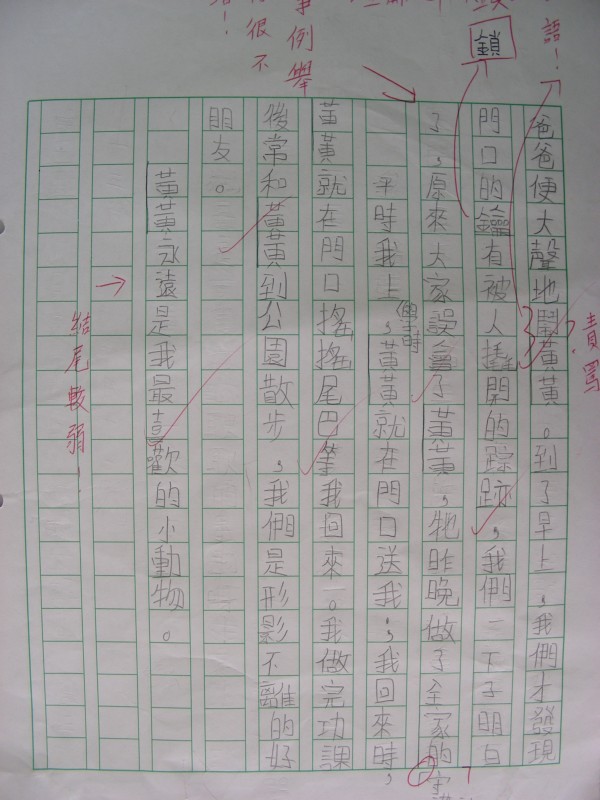 語!
鎖
例舉
很不
責罵
爸爸便大聲地鬧黃黃。到了早上,我們才發現
門口的鑰有被人撬開的踪跡,我們一下子明白
了,原來大家誤會了黃黃,牠昨晚做了全家的守
平時我上學時,黃黃就在門口送我;我回來時,
黃黃就在門口搖搖尾巴等我回來。我做完功課
後常和黃黃到公園散步,我們是形影不離的好
朋友。
黃黃永遠是我最喜歡的小動物。
結尾較弱!